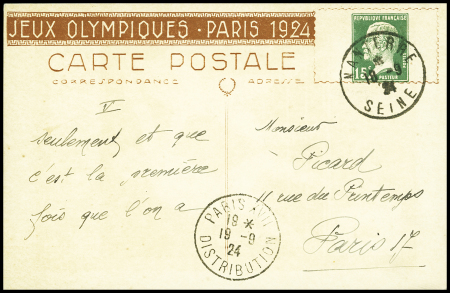 JEUX OLYMPIQUES · PARIS 1924
CARTE POSTALE
CORRESPONDANCE ADRESSE
REPUBLIQUE FRANÇAISE
15c PASTEUR
NANTERRE
24
SEINE
V
seulement et que
c'est la première
fois que l'on a
PARIS XVII
18 *
19 - 9
24
DISTRIBUTION
Monsieur
Picard
11 rue du Printemps
Paris 17